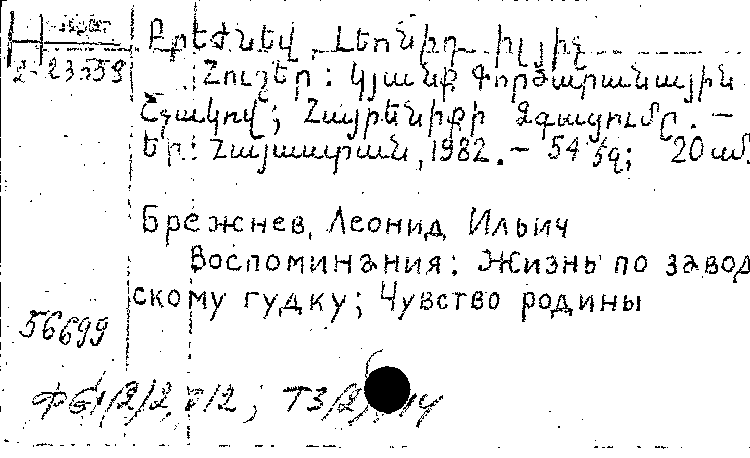 Н
2-23559
Բրեժնև, Լեոնիդ Իլյիչ
Հուշեր: Կյանք Փործարանային
Շչակով; Հայրենիքի Զգացումը. –
Եր: Հայաստան, 1982. – 54 էջ; 20 սմ.
Брежнев, Леонид Ильич
Воспоминания: Жизнь по завод
скому гудку; Чувство родины
56699